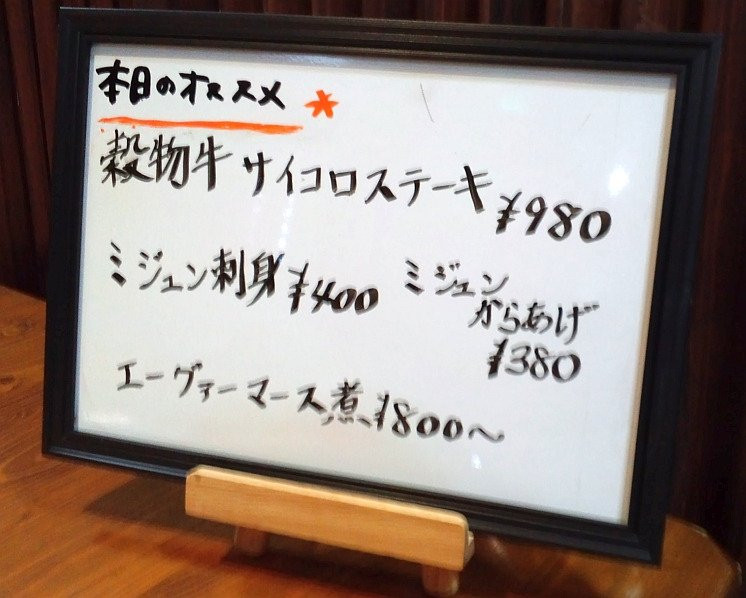 本日のオススメ
穀物牛サイコロステーキ ¥980
ミジュン刺身 ¥400
ミジュン
からあげ
¥380
エーグァーマース煮 ¥800〜